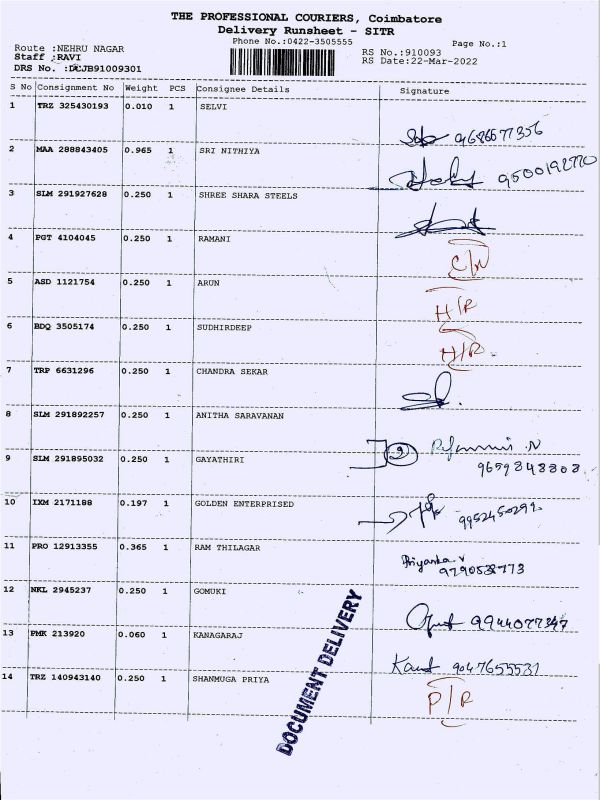 THE PROFESSIONAL COURIERS, Coimbatore
Delivery Runsheet - SITR
Phone No.:0422-3505555
Page No.:1
Route :NEHRU NAGAR
RS No.:910093
Staff :RAVI
RS Date:22-Mar-2022
DRS No. :DCJB91009301
S No Consignment No Weight PCS Consignee Details Signature
1 TRZ 325430193 0.010 1 SELVI
2 MAA 288843405 0.965 1 SRI NITHIYA
3 SLM 291927628 0.250 1 SHREE SHARA STEELS
4 PGT 4104045 0.250 1 RAMANI
5 ASD 1121754 0.250 1 ARUN H/R
6 BDQ 3505174 0.250 1 SUDHIRDEEP H/R
7 TRP 6631296 0.250 1 CHANDRA SEKAR
8 SLM 291892257 0.250 1 ANITHA SARAVANAN
9 SLM 291895032 0.250 1 GAYATHIRI 9659848808
10 IXM 2171188 0.197 1 GOLDEN ENTERPRISED 9952450299
11 PRO 12913355 0.365 1 RAM THILAGAR Priyanka v
9790538773
12 NKL 2945237 0.250 1 GOMUKI 9944077347
13 PMK 213920 0.060 1 KANAGARAJ 9047655531
14 TRZ 140943140 0.250 1 SHANMUGA PRIYA P/R
DOCUMENT DELIVERY